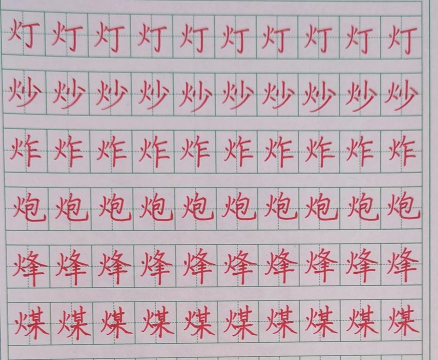 灯灯灯灯灯灯灯灯灯灯
炒炒炒炒炒炒炒炒炒炒
炸炸炸炸炸炸炸炸炸炸
炮炮炮炮炮炮炮炮炮炮
烽烽烽烽烽烽烽烽烽烽
煤煤煤煤煤煤煤煤煤煤